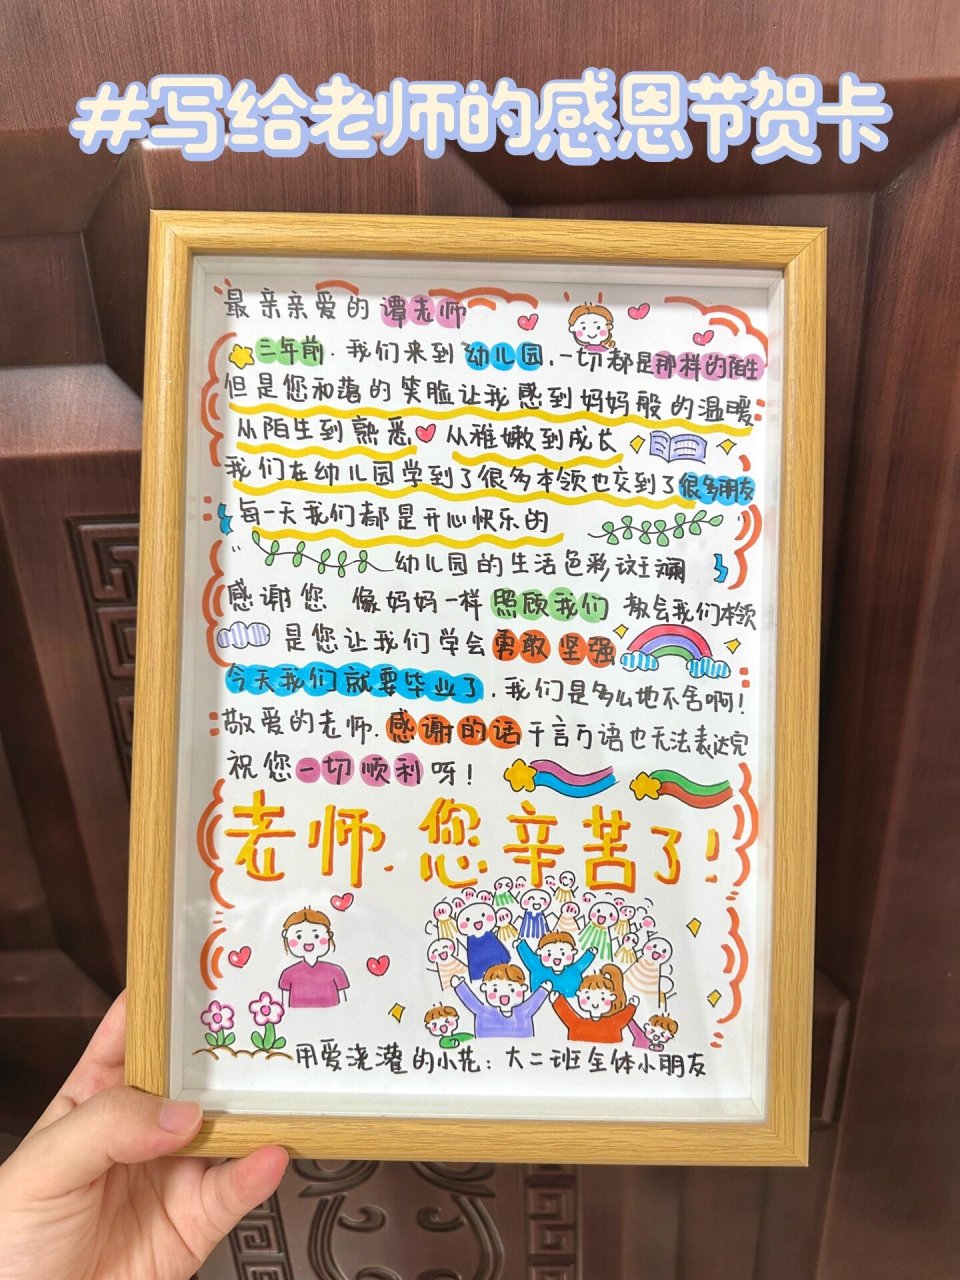 #写给老师的感恩节贺卡
最亲亲爱的谭老师
三年前.我们来到幼儿园,一切都是那样的陌生
但是您和蔼的笑脸让我感到妈妈般的温暖
从陌生到熟悉 从稚嫩到成长
我们在幼儿园学到了很多本领也交到了很多朋友
每一天我们都是开心快乐的
幼儿园的生活色彩斑斓
感谢您 像妈妈一样照顾我们 教会我们本领
是您让我们学会勇敢坚强
今天我们就要毕业了,我们是多么地不舍啊!
敬爱的老师.感谢的话千言万语也无法表达完
祝您一切顺利呀!
老师.您辛苦了!
用爱浇灌的小花:大二班全体小朋友